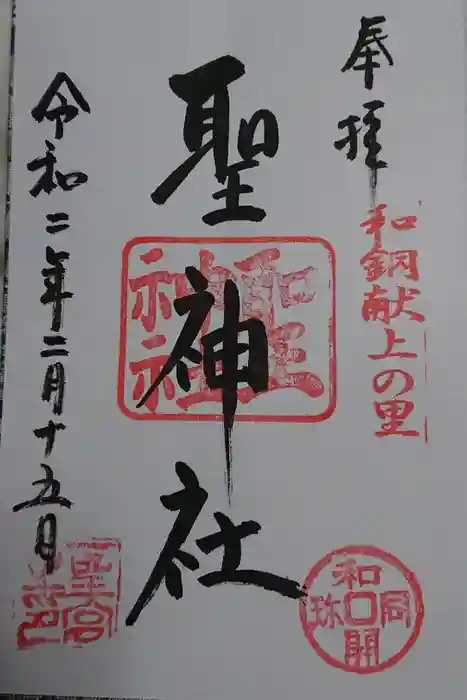 奉拝
和銅献上の里
聖神社
聖神社
和同開珎
令和二年二月十五日